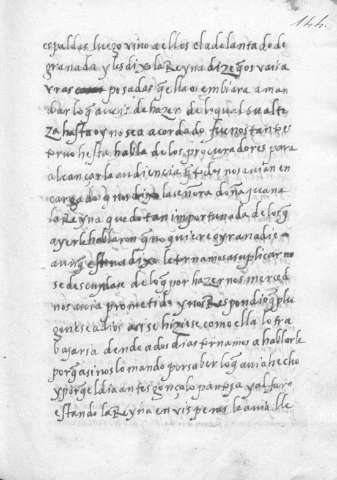 144.
espaldas luego vino a ellos el adelantado de
granada y les dixo la Reyna dize q̃ os vais a
vras posadas que ella os embiara a man
dar lo q̃ aveis de hazer de lo qual su alte
za hasta oy no sea acordado fue nos tan pes
esta habla de los procuradores para
alcançar la audiencia q̃ todos nos avian en
cargado q̃ nos dixo la señora doña juana
la Reyna quedo tan importunada de los q̃
ayer le hablaron q̃ no quiere oyr a nadie
aunq̃ esto nos dixo le tornamos a suplicar no
se descuydase de lo q̃ por hazer nos merced
nos avia prometido y nos Respondio q̃ plu
guiese a dios asi se hiziese como ella lo tra
bajaria dende a dos dias tornamos a hablarle
porq̃ asi nos lo mando por saber lo q̃ avia hecho
y porq̃ el dia antes gonçalo pantoja y alfaro
estando la Reyna en visperas la avia lle